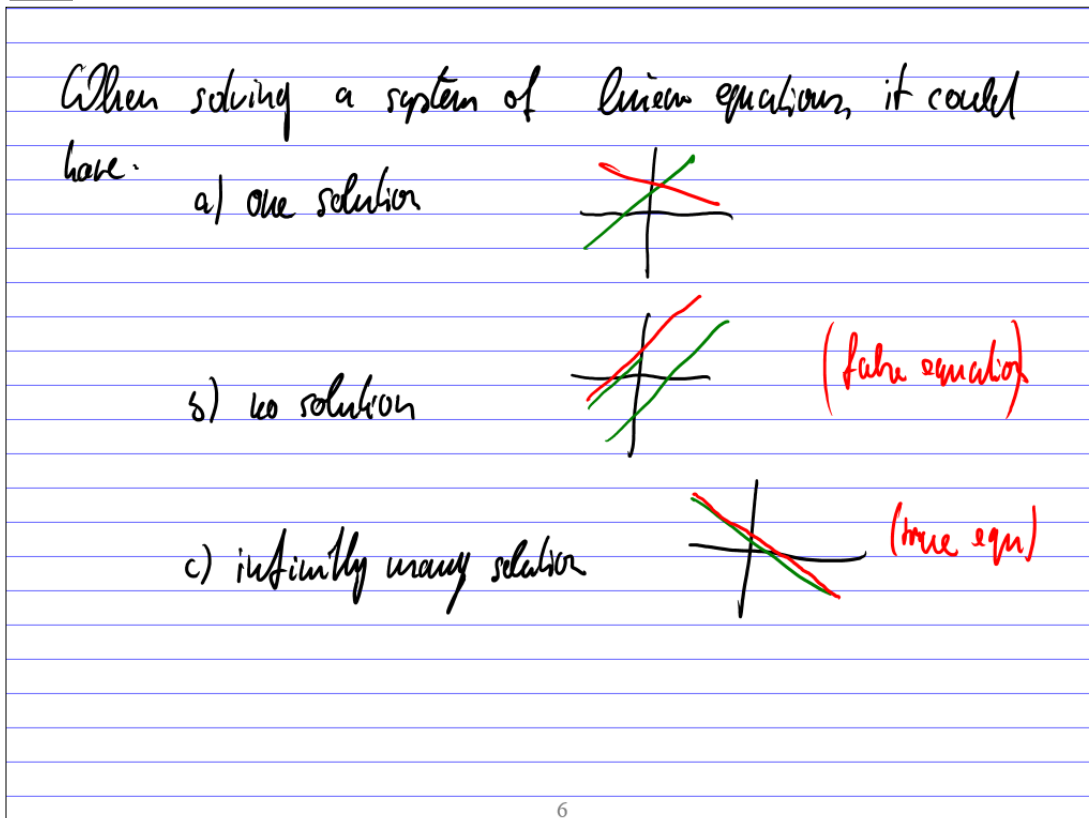 When solving a system of linear equations, it could
have.
a) one solution
b) no solution
(false equation)
c) infinitly many solution
(true eqn)
6